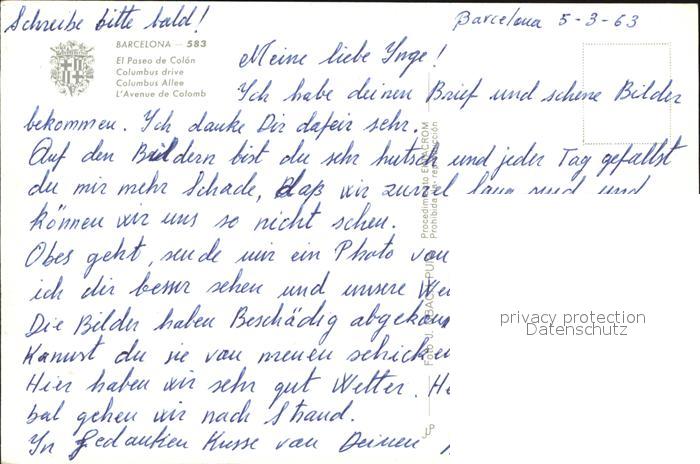 Schreibe bitte bald!
Barcelona 5-3-63
BARCELONA - 583
El Paseo de Colón
Columbus drive
Columbus Allee
L'Avenue de Colomb
Meine liebe Ynge!
Ych habe deinen Brief und schene Bilder
bekommen. Ych danke Dir dafeir sehr.
Auf den Bildern bist du sehr hutsch und jeder Tag gefallst
du mir mehr Schade, daß wir
können wir uns so nicht sehen.
Obes geht, sende mir ein Photo von
ich dir besser sehen und unsere
Die Bilder haben Beschädig
Kannst du sie von meuen schicken
Hier haben wir sehr gut Wetter.
bal gehen wir nach Strand.
Yn Gedanken Kusse von Deinen
Prohibida
privacy protection
Datenschutz